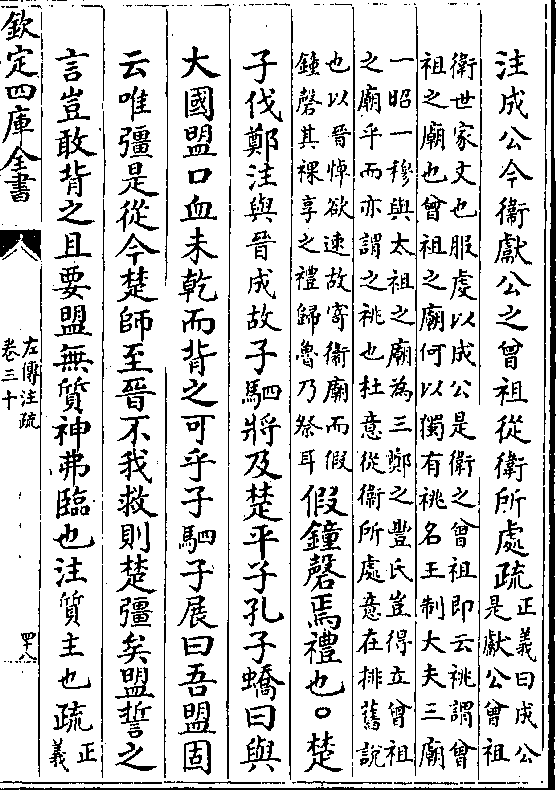 注成公今衞獻公之曾祖從衞所處疏正義曰成公
是獻公曾祖
衛世家文也服虔以成公是衛之曾祖即云祧謂曾
祖之廟也曾祖之廟何以獨有祧名王制大夫三廟
一昭一穆與太祖之廟為三鄭之豐氏豈得立曾祖
之廟乎而亦謂之祧也杜意從衞所處意在排舊說
也以晉悼欲速故寄衞廟而假
鍾磬其祼享之禮歸魯乃祭耳
假鐘磬焉禮也○楚
子伐鄭注與晉成故子駟將及楚平子孔子蟜曰與
大國盟口血未乾而背之可乎子駟子展曰吾盟固
云唯彊是從今楚師至晉不我救則楚彊矣盟誓之
言豈敢背之且要盟無質神弗臨也注質主也疏正
義
欽定四庫全書
左傳注疏
卷三十
四十八